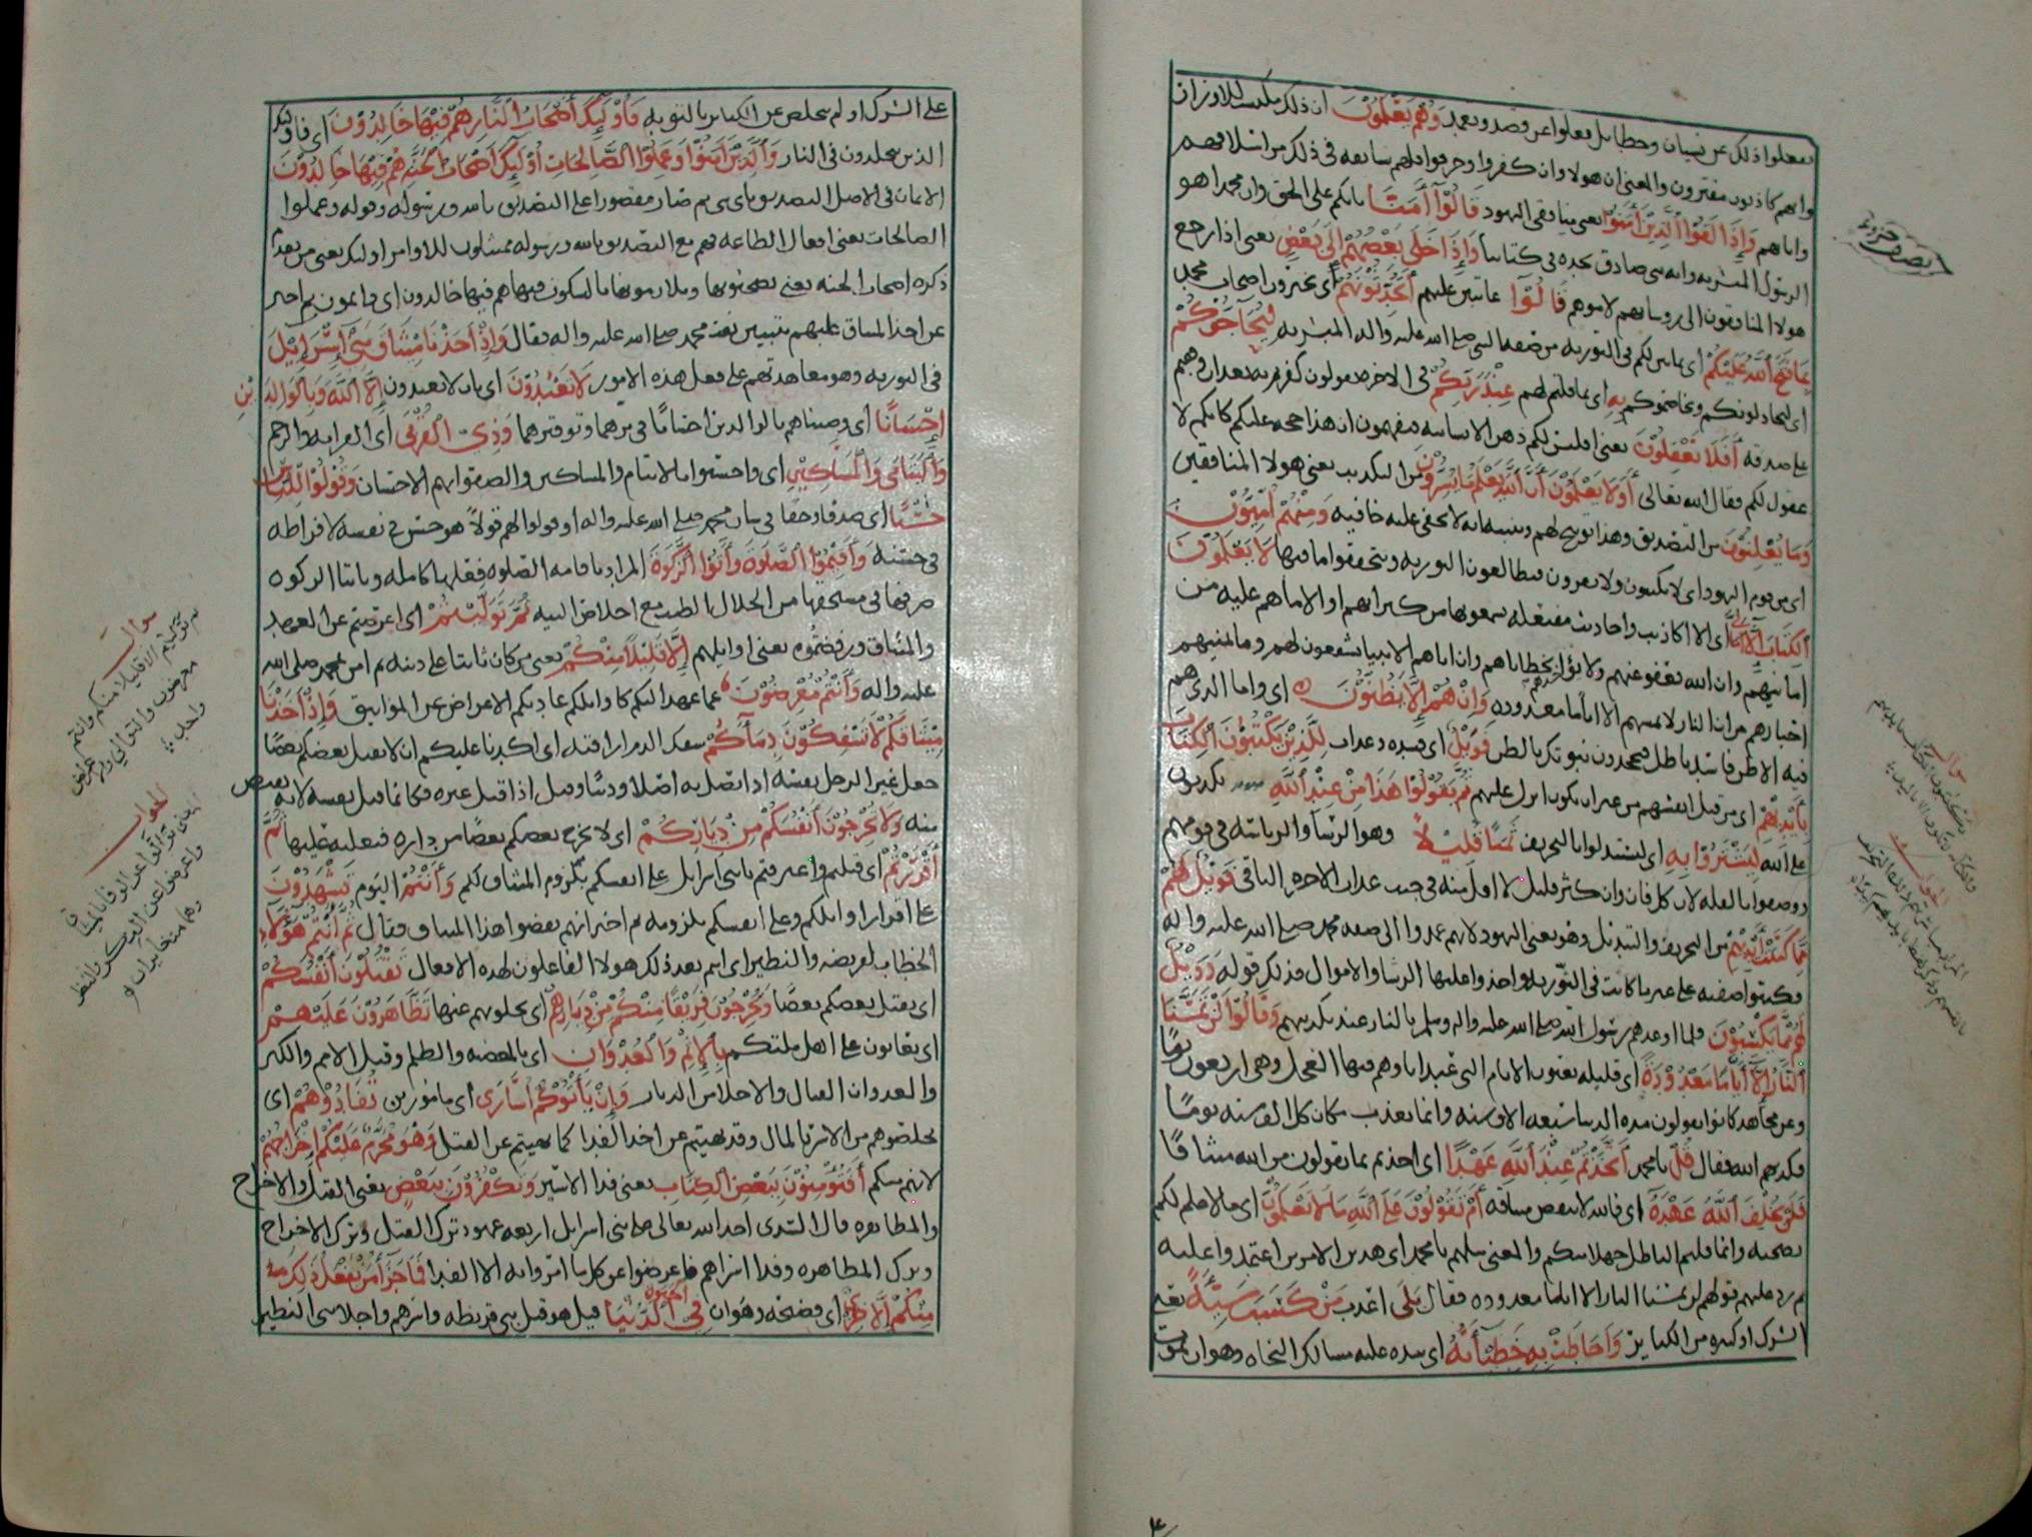 يفعلوا ذلك عن نسيان وخطا بل فعلوا عن قصد وتعمد وَهُمْ يَعْلَمُوْنَ ان ذلك مكسب للاوزار
وانهم كاذبون مفترون والمعنى ان هولا وان كفروا وحرفوا فلهم سابقه في ذلك من اسلافهم
واباهم وَإِذَا لَقُوْا الَّذِيْنَ آمَنُوْا يعنى منافقى اليهود قَالُوْآ آمَنَّا بانكم على الحق وان محمدا هو
الرسول المبشر به وانه نبى صادق نجده في كتابنا وَإِذَا خَلَى بَعْضُهُمْ إِلَى بَعْضٍ يعنى اذا رجع
هولا المنافقون الى روسايهم لاموهم قَالُوْا عاتبين عليهم أَتُحَدِّثُوْنَهُمْ اى تخبرون اصحاب محمد
بِمَا فَتَحَ اللَّهُ عَلَيْكُمْ اى بما بين لكم في التوريه من صفه النبى صلى الله عليه واله المبشر به لِيُحَاجُّوْكُمْ
اى ليجادلونكم ويخاصموكم بِهِ اى بما قلتم لهم عِنْدَ رَبِّكُمْ في الاخره يقولون كفرتم به بعد ان وقفتم
على صدقه أَفَلَا تَعْقِلُوْنَ يعنى افليس لكم ذهن الانسانيه فتفهمون ان هذا حجه عليكم كانكم لا
عقول لكم فقال الله تعالى أَوَلَا يَعْلَمُوْنَ أَنَّ اللَّهَ يَعْلَمُ مَا يُسِرُّوْنَ من التكذيب يعنى هولا المنافقين
وَمَا يُعْلِنُوْنَ من التصديق وهذا توبيخ لهم وتنبيه انه لا تخفى عليه خافيه وَمِنْهُمْ أُمِّيُّوْنَ
اى من قوم اليهود اى لا يكتبون ولا يقرون فيطالعون التوريه ويتحققوا ما فيها لَا يَعْلَمُوْنَ
الْكِتَابَ إِلَّا أَمَانِيَّ اى الا اكاذيب واحاديث مفتعله سمعوها من كبرائهم او الا ما هم عليه من
امانيهم وان الله يعفو عنهم ولا يؤاخذهم بخطاياهم وان اباهم الانبيا يشفعون لهم وما تمنيهم
احبارهم من ان النار لا تمسهم الا اياما معدوده وَإِنْ هُمْ إِلَّا يَظُنُّوْنَ اى وما الذى هم
فيه الا ظن فاسد باطل فيجحدون نبوتك بالظن فَوَيْلٌ اى شده وعذاب لِلَّذِيْنَ يَكْتُبُوْنَ الْكِتَابَ
بِأَيْدِيْهِمْ اى من قبل انفسهم من غير ان يكون انزل عليهم ثُمَّ يَقُوْلُوْا هَذَا مِنْ عِنْدِ اللَّهِ يكذبون
على الله لِيَشْتَرُوْا بِهِ اى ليستبدلوا بالتحريف ثَمَنًا قَلِيْلاً وهو الرشا والرياسه في قومهم
ووصفوا بالقله لان كل فان وان كثر قليل لا اقل منه في جنب عذاب الاخره الباقى فَوَيْلٌ لَهُمْ
مِمَّا كَتَبَتْ أَيْدِيْهِمْ من التحريف والتبديل وهو يعنى اليهود لانهم عمدوا الى صفه محمد صلى الله عليه واله
فكتبوا صفته على غير ما كانت في التوريه واخذوا عليها الرشا والاموال فذلك قوله وَوَيْلٌ
لَهُمْ مِمَّا يَكْسِبُوْنَ فلما اوعدهم رسول الله صلى الله عليه واله وسلم بالنار عند تكذيبهم وَقَالُوْا لَنْ تَمَسَّنَا
النَّارُ إِلَّا أَيَّامًا مَعْدُوْدَةً اى قليله يعنون الايام التى عبد اباوهم فيها العجل وهى اربعون يوما
وعن مجاهد كانوا يقولون مده الدنيا سبعه الاف سنه وانما نعذب مكان كل الف سنه يومًا
فكذبهم الله فقال قُلْ يا محمد أَتَّخَذْتُمْ عِنْدَ اللَّهِ عَهْدًا اى اخذتم بما تقولون من الله ميثاقًا
فَلَنْ يُخْلِفَ اللَّهُ عَهْدَهُ اى فالله لا ينقض ميثاقه أَمْ تَقُوْلُوْنَ عَلَى اللَّهِ مَا لَا تَعْلَمُوْنَ اى ما لا علم لكم
بصحته وانما قلتم الباطل جهلا منكم والمعنى سلهم يا محمد اى هذين الامرين اعتمدوا عليه
ثم رد عليهم قولهم لن تمسنا النار الا اياما معدوده فقال بَلَى اعذب مَنْ كَسَبَ سَيِّئَةً يعنى
الشرك او كبيره من الكبائر وَأَحَاطَتْ بِهِ خَطِيْئَاتُهُ اى سده عليه مسالك النجاه وهو ان يموت
على الشرك او لم يتخلص عن الكبائر بالتوبه فَأُوْلَئِكَ أَصْحَابُ النَّارِ هُمْ فِيْهَا خَالِدُوْنَ اى فاوليك
الذين يخلدون في النار وَالَّذِيْنَ آمَنُوْا وَعَمِلُوْا الصَّالِحَاتِ أُوْلَئِكَ أَصْحَابُ الْجَنَّةِ هُمْ فِيْهَا خَالِدُوْنَ
الايمان في الاصل التصديق باى شى ثم صار مقصورا على التصديق بالله ورسوله وقوله وعملوا
الصالحات يعنى افعال الطاعه فهم مع التصديق بالله ورسوله ممتثلون للاوامر اوليك يعنى من تقدم
ذكره اصحاب الجنه يعنى يصحبونها ويلازمونها بالسكون فيها هم فيها خالدون اى دايمون ثم اخبر
عن اخذ الميثاق عليهم بتبيين نعت محمد صلى الله عليه واله فقال وَإِذْ أَخَذْنَا مِيْثَاقَ بَنِيْ إِسْرَائِيْلَ
في التوريه وهو معاهدتهم على فعل هذه الامور لَا تَعْبُدُوْنَ اى بان لا تعبدون إِلَّا اللَّهَ وَبِالْوَالِدَيْنِ
إِحْسَانًا اى وصيناهم بالوالدين احسانًا في برهما وتوقيرهما وَذِيْ الْقُرْبَى اى القرابه والرحم
وَالْيَتَامَى وَالْمَسَاكِيْنِ اى واحسنوا بالايتام والمساكين والصقوا بهم الاحسان وَقُوْلُوْا لِلنَّاسِ
حُسْنًا اى صدقا وحقا في شان محمد صلى الله عليه واله او قولوا لهم قولاً هو حسن في نفسه لافراطه
في حسنه وَأَقِيْمُوْا الصَّلَوةَ وَآتُوْا الزَّكَوةَ المراد باقامه الصلوه فعلها كامله وبايتا الزكوه
صرفها في مستحقها من الحلال الطيب مع اخلاص النيه ثُمَّ تَوَلَّيْتُمْ اى اعرضتم عن العهد
والميثاق ورفضتموه يعنى اوايلهم إِلَّا قَلِيْلاً مِنْكُمْ يعنى من كان ثابتا على دينه ثم امن بمحمد صلى الله
عليه واله وَأَنْتُمْ مُعْرِضُوْنَ عما عهد اليكم كاوايلكم عادتكم الاعراض عن المواثيق وَإِذْ أَخَذْنَا
مِيْثَاقَكُمْ لَا تَسْفِكُوْنَ دِمَآءَكُمْ سفك الدم اراقته اى اكدنا عليكم ان لا يقتل بعضكم بعضًا
جعل غير الرجل نفسه اذا اتصل به اصلا ودينًا وقيل اذا قتل غيره فكانما قتل نفسه لانه يقتص
منه وَلَا تُخْرِجُوْنَ أَنْفُسَكُمْ مِنْ دِيَارِكُمْ اى لا يخرج بعضكم بعضًا من داره فيغلبه عليها ثُمَّ
أَقْرَرْتُمْ اى قبلتم واعترفتم يا بنى اسرايل على انفسكم بلزوم الميثاق لكم وَأَنْتُمْ اليوم تَشْهَدُوْنَ
على اقرار اوايلكم وعلى انفسكم بلزومه ثم اخبر انهم نقضوا هذا الميثاق فقال ثُمَّ أَنْتُمْ هَؤُلَاءِ
الخطاب لقريضه والنظير اى انتم بعد ذلك هولا الفاعلون لهذه الافعال تَقْتُلُوْنَ أَنْفُسَكُمْ
اى يقتل بعضكم بعضًا وَتُخْرِجُوْنَ فَرِيْقًا مِنْكُمْ مِنْ دِيَارِهِمْ اى تجلونهم عنها تَظَاهَرُوْنَ عَلَيْهِمْ
اى تعاونون على اهل ملتكم بِالْإِثْمِ وَالْعُدْوَانِ اى بالمعصيه والظلم وقيل الاثم والكبر
والعدوان القتال والاجلا من الديار وَإِنْ يَأْتُوْكُمْ أُسَارَى اى ماسورين تُفَادُوْهُمْ اى
تخلصوهم من الاسر بالمال وقد نهيتم عن اخذ الفدا كما نهيتم عن القتل وَهُوَ مُحَرَّمٌ عَلَيْكُمْ إِخْرَاجُهُمْ
لانهم منكم أَفَتُؤْمِنُوْنَ بِبَعْضِ الْكِتَابِ يعنى فدا الاسير وَتَكْفُرُوْنَ بِبَعْضٍ يعنى القتل والاخراج
والمظاهره قال السدى اخذ الله تعالى على بنى اسرايل اربعه عهود ترك القتل وترك الاخراج
وترك المظاهره وفدا اسراهم فاعرضوا عن كل ما امروا به الا الفدا فَمَا جَزَآءُ مَنْ يَفْعَلُ ذَلِكَ
مِنْكُمْ إِلَّا خِزْيٌ اى فضيحه وهوان فِي الْحَيَوةِ الدُّنْيَا قيل هو قتل بنى قريظه واسرهم واجلا بنى النظير
سوال
ثم توليتم الا قليلا منكم وانتم
معرضون والتولى والاعراض
واحد
الجواب